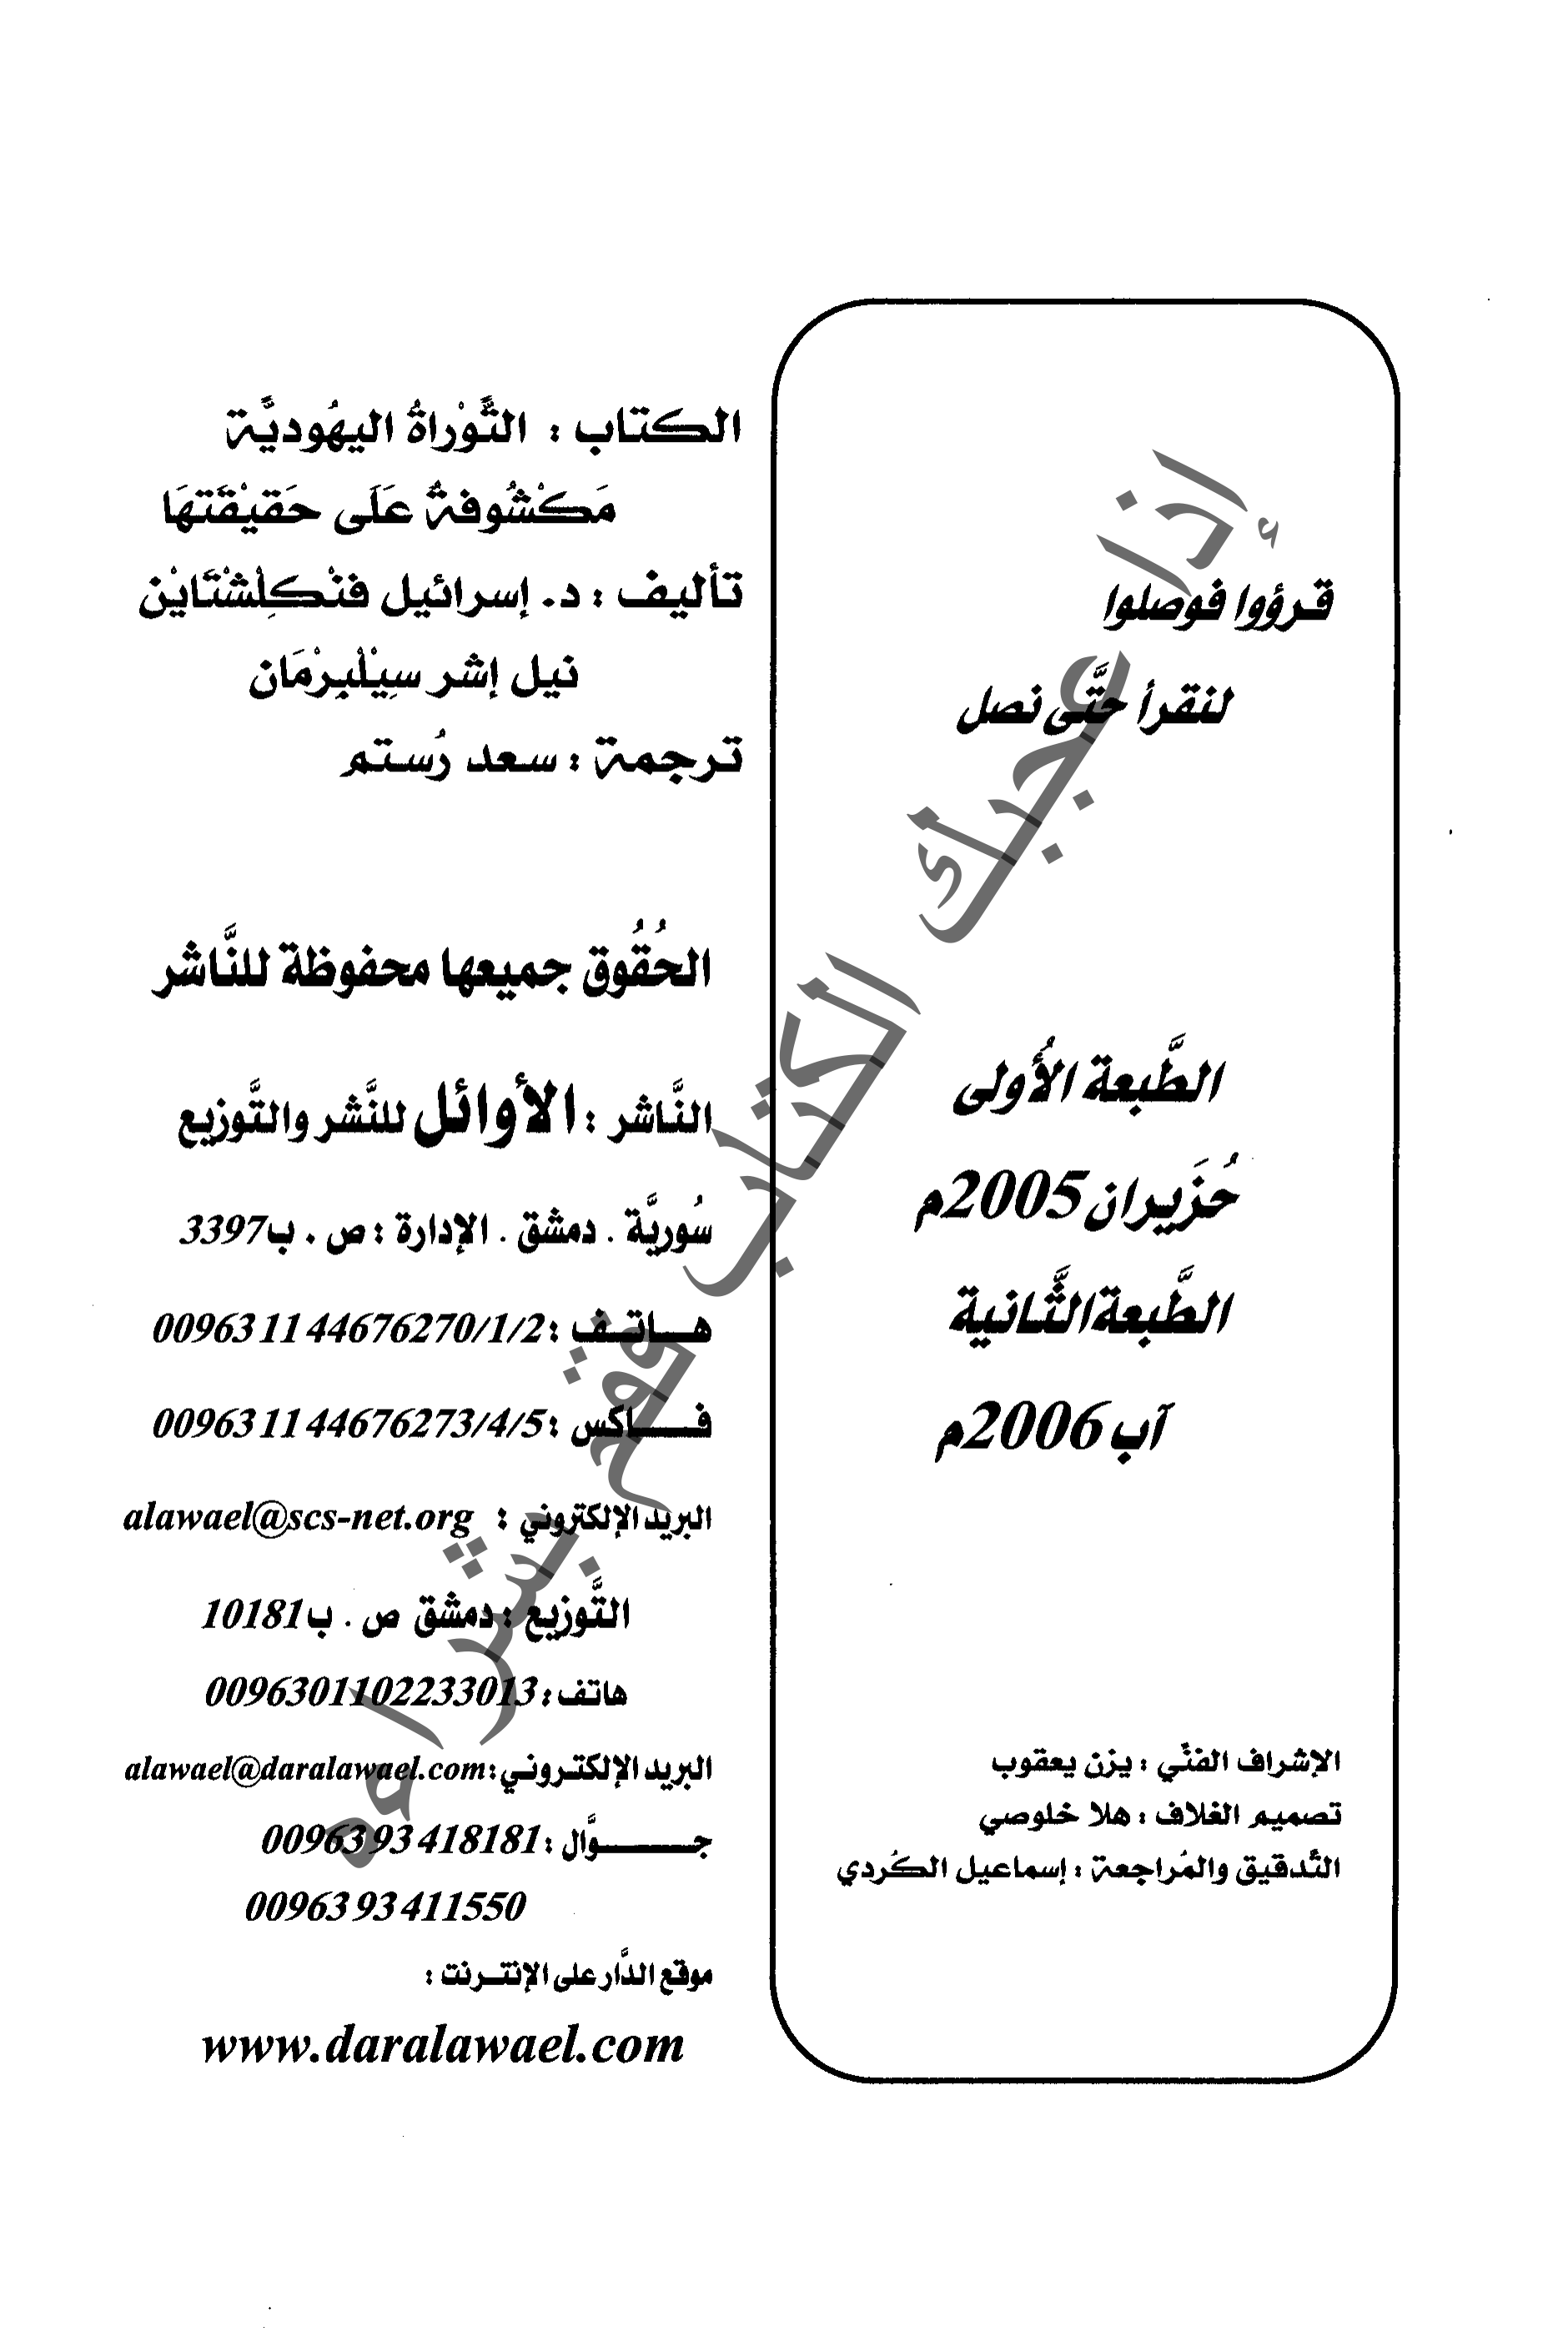 قرؤوا فوصلوا
لنقرأ حتَّى نصل
الطَّبعة الأُولى
حُزَيران 2005م
الطَّبعة الثَّانية
آب 2006م
الإشراف الفنِّي : يزن يعقوب
تصميم الغلاف : هلا خلوصي
التَّدقيق والمُراجعة : إسماعيل الكُردي
الكتاب : التَّوْراةُ اليهُوديَّة
مَكْشُوفةٌ عَلَى حَقيْقَتهَا
تأليف : د. إسرائيل فنْكِلْشْتَايْن
نيل إشر سيِْلْبِرْمَان
ترجمة : سعد رُستم
الحُقُوق جميعها محفوظة للنَّاشر
النَّاشر : الأوائل للنَّشر والتَّوزيع
سُوريَّة . دمشق . الإدارة : ص . ب 3397
هـاتـف : 00963 11 44676270/1/2
فــاكس : 00963 11 44676273/4/5
البريد الإلكتروني : alawael@scs-net.org
التَّوزيع : دمشق ص . ب 10181
هاتف : 0096301102233013
البريد الإلكتـرونـي : alawael@daralawael.com
جـــوَّال : 00963 93 418181
00963 93 411550
موقع الدَّار على الإنتـرنت :
www.daralawael.com
إذا أعجبك الكتاب فقم بشراءه